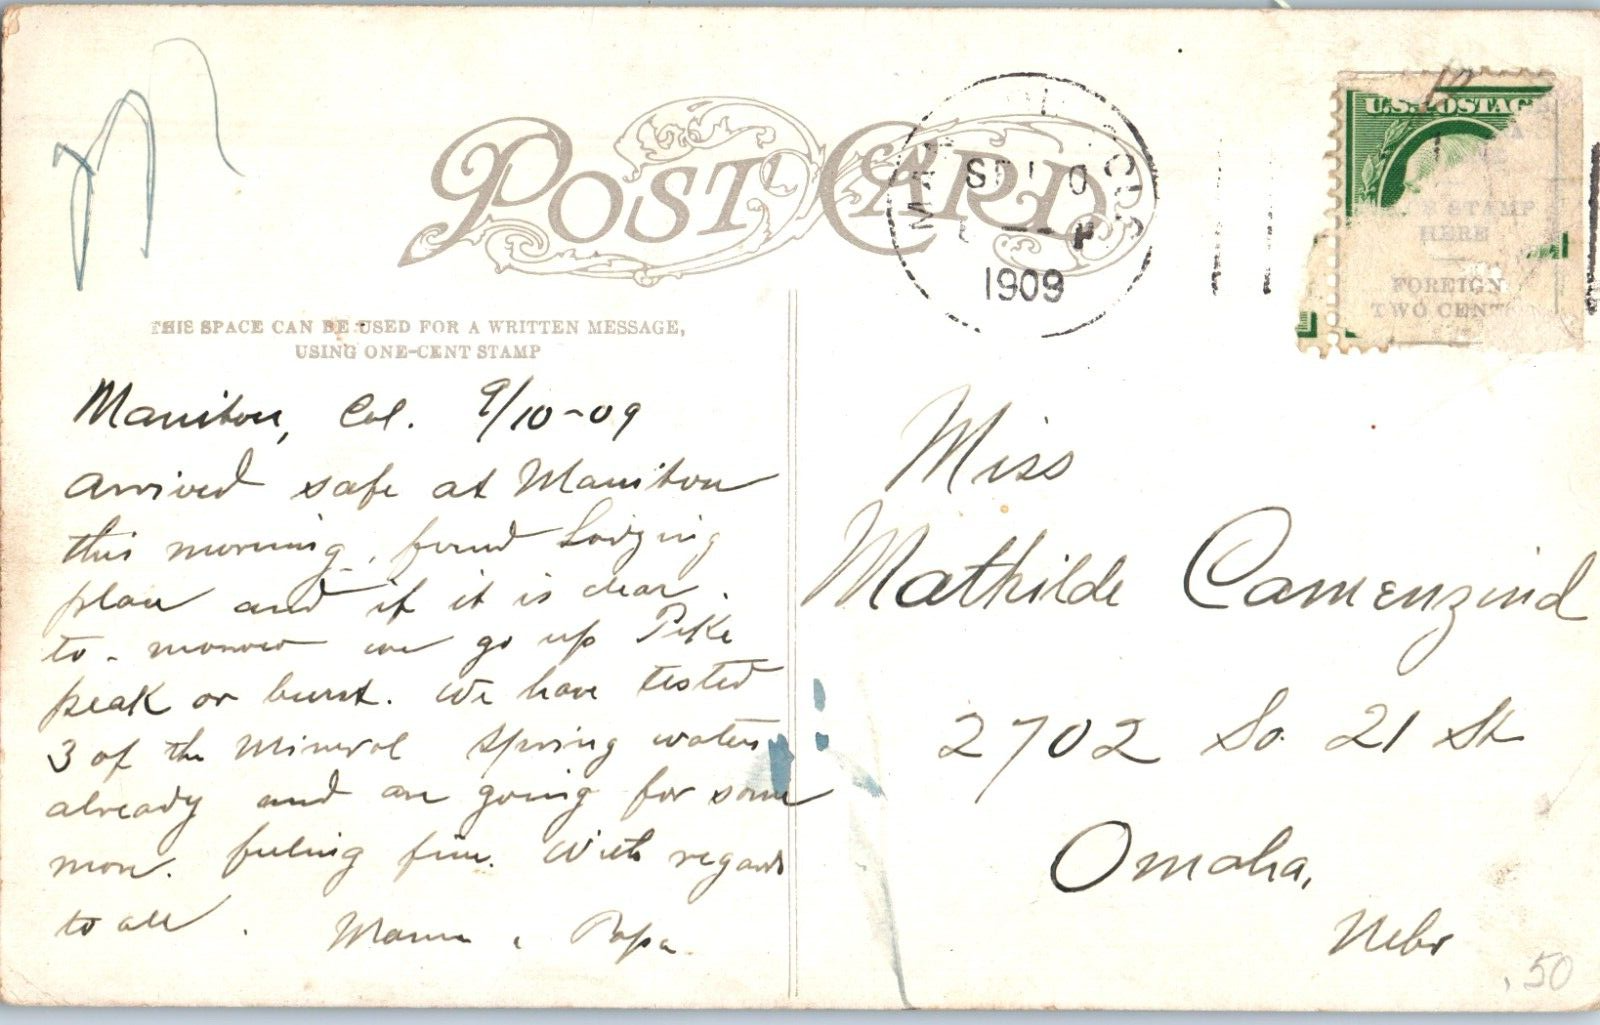 POST CARD
1909
U.S. POSTAG
STAMP
HERE
FOREIGN
TWO CENT
THIS SPACE CAN BE USED FOR A WRITTEN MESSAGE,
USING ONE-CENT STAMP
Manitou, Col. 9/10-09
arrived safe at Manitou
this morning, found Lodging
place and if it is clear
to-morrow we go up Pike
peak or burst. We have tested
3 of the Mineral spring waters
already and are going for some
more. feeling fine. With regards
to all. Mama & Papa
Miss
Mathilde Camenzind
2702 So. 21 St
Omaha,
Nebr
.50